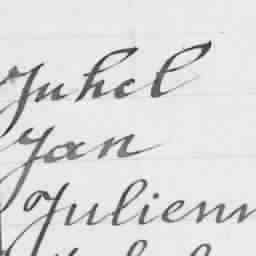 Juhel
Jan
Julienn